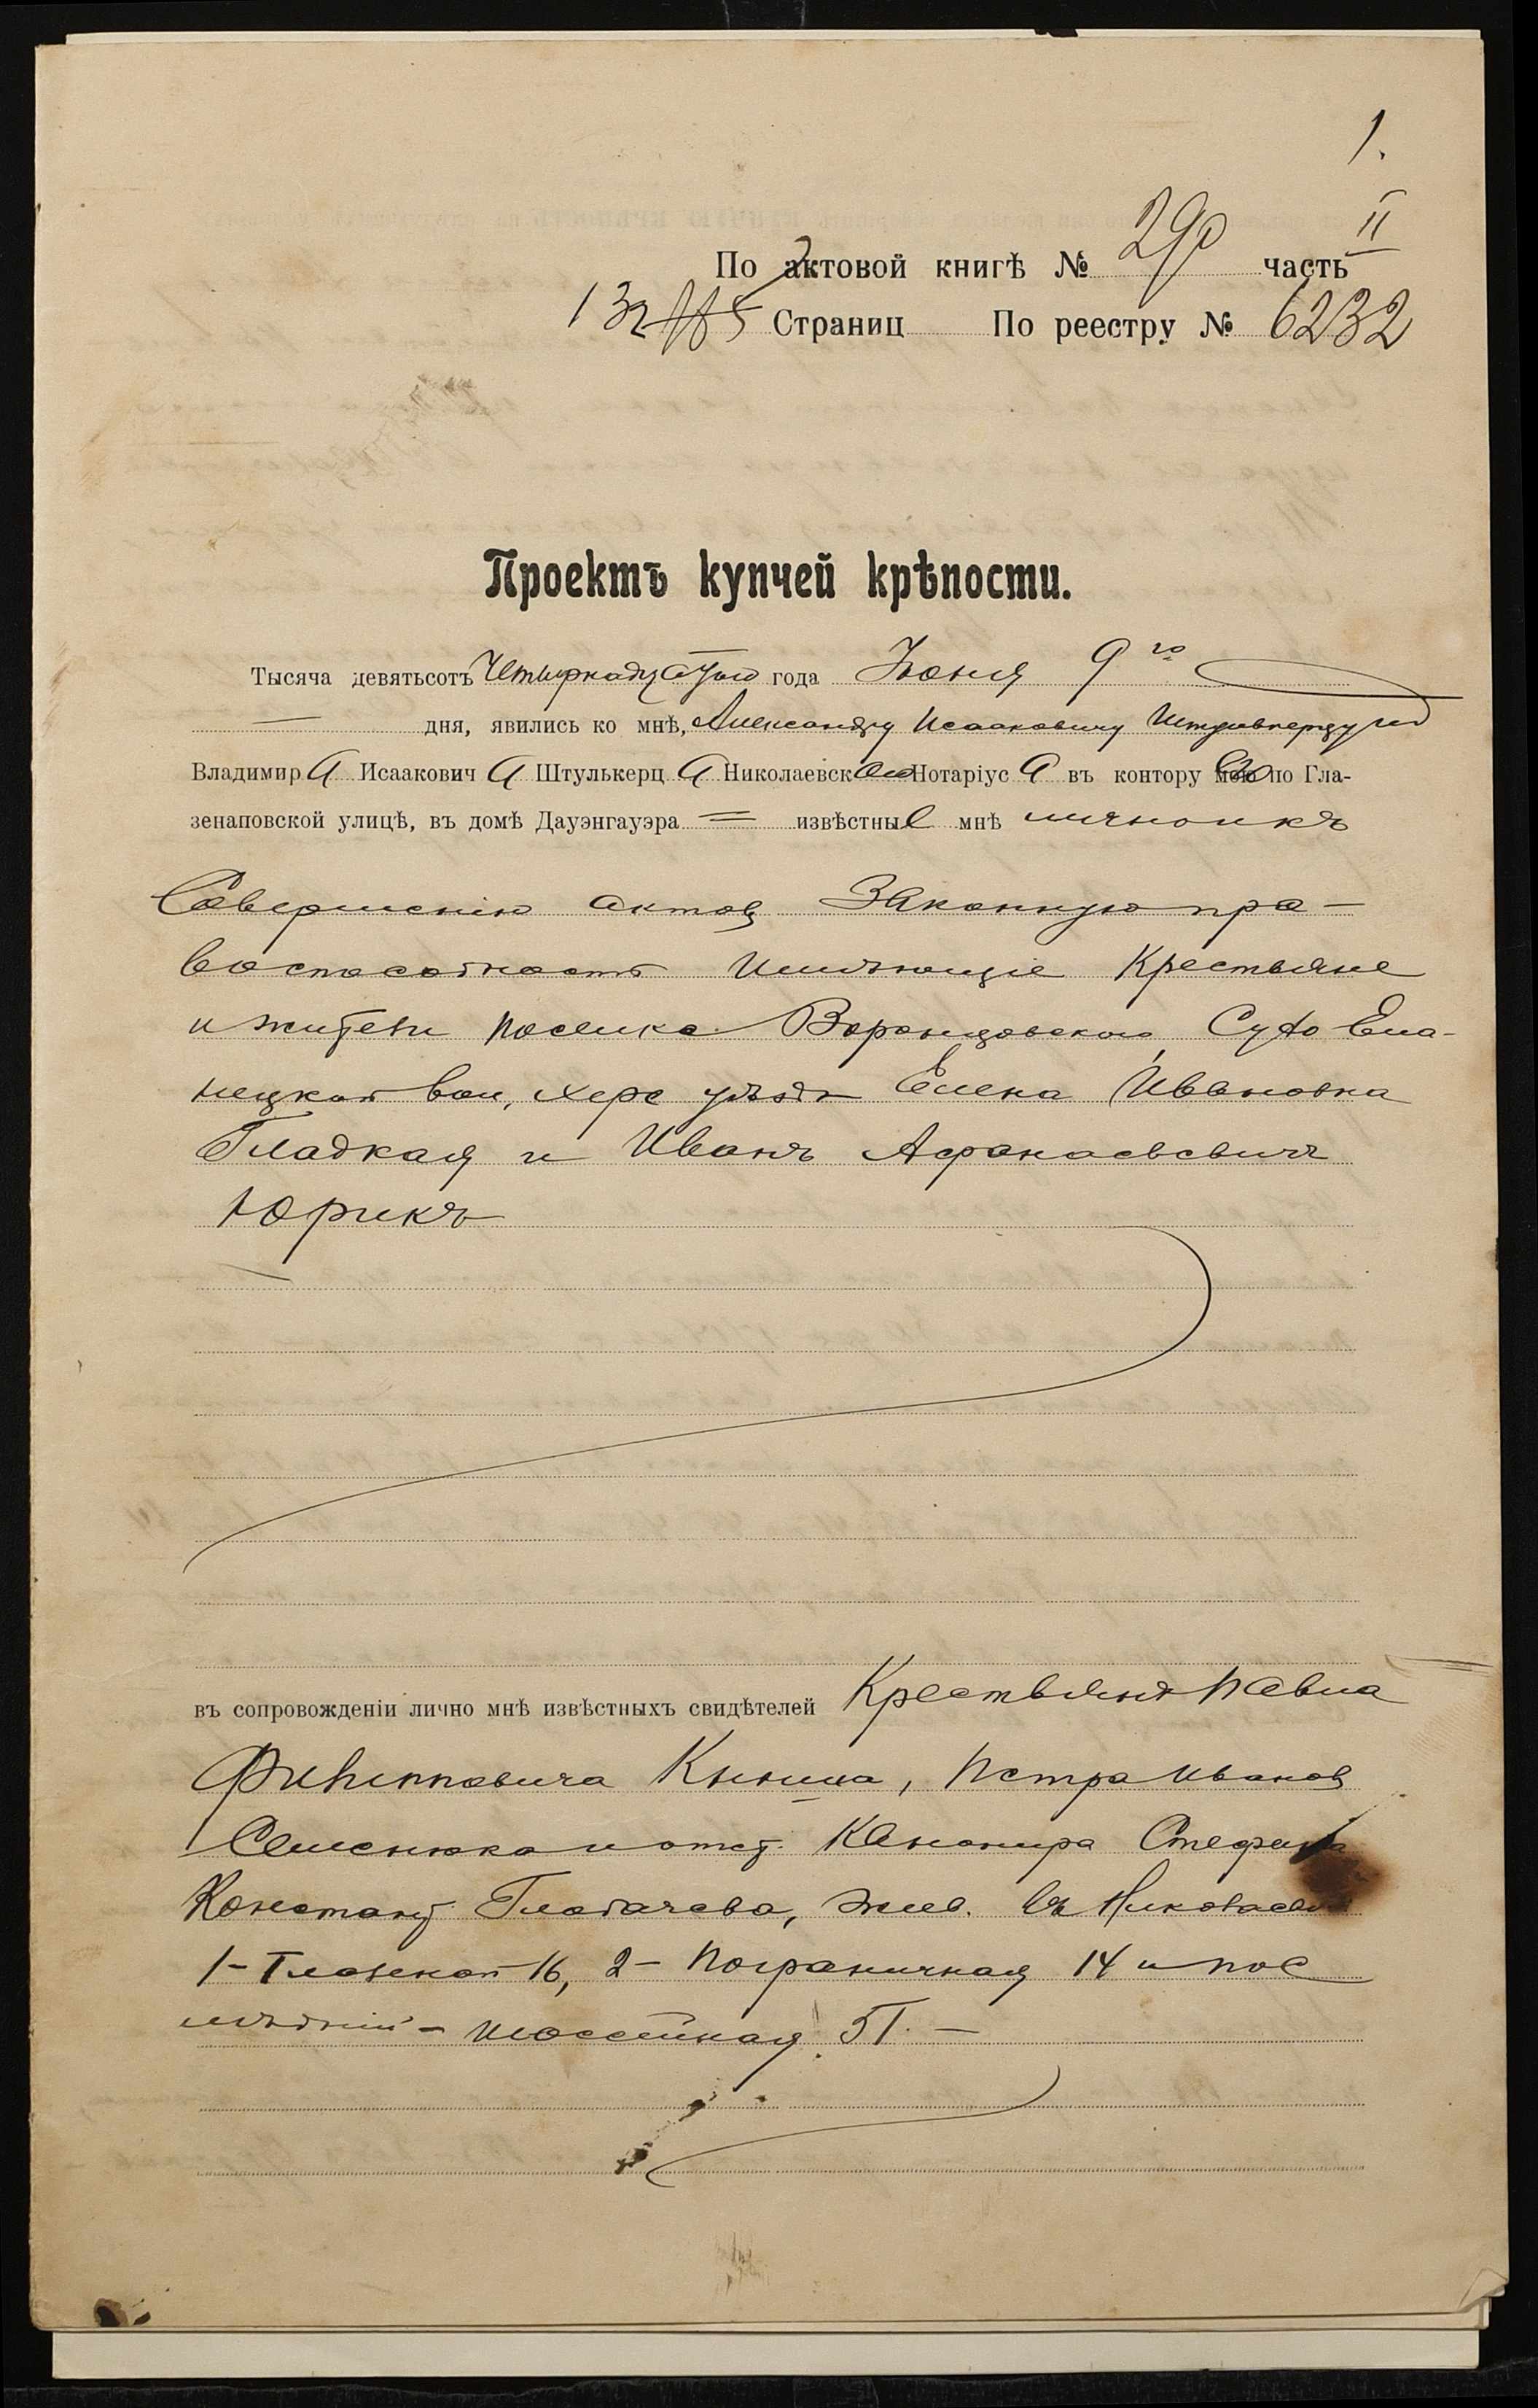 1.
По актовой книгѣ № 290 часть II
132 Страниц По реестру № 6232
Проектъ купчей крѣпости.
Тысяча девятьсотъ Четырнадцатого года Іюня 9го
дня, явились ко мнѣ, Александру Исааковичу Штулькерцу и д
Владимира Исааковича Штулькерца Николаевскаго Нотаріуса въ контору его по Гла-
зенаповской улицѣ, въ домѣ Дауэнгауэра = извѣстные мнѣ лично и къ
Совершенію актов законную пра-
воспособность имѣющіе Крестьяне
и жители поселка Воронцовскаго Сухо Ела-
нецкой вол, Херс уѣзда Елена Ивановна
Гладкая и Иванъ Афанасьевичъ
Юрикъ
въ сопровожденіи лично мнѣ извѣстныхъ свидѣтелей Крестьянъ Павла
Филипповича Книша, Петра Иванов
Семенюка и отст. Канонира Стефана
Констант Глобачева, жив. въ Николаевѣ
1- Глазенап 16, 2- Пограничная 14 и пос
лѣдній - Шоссейная 51. -